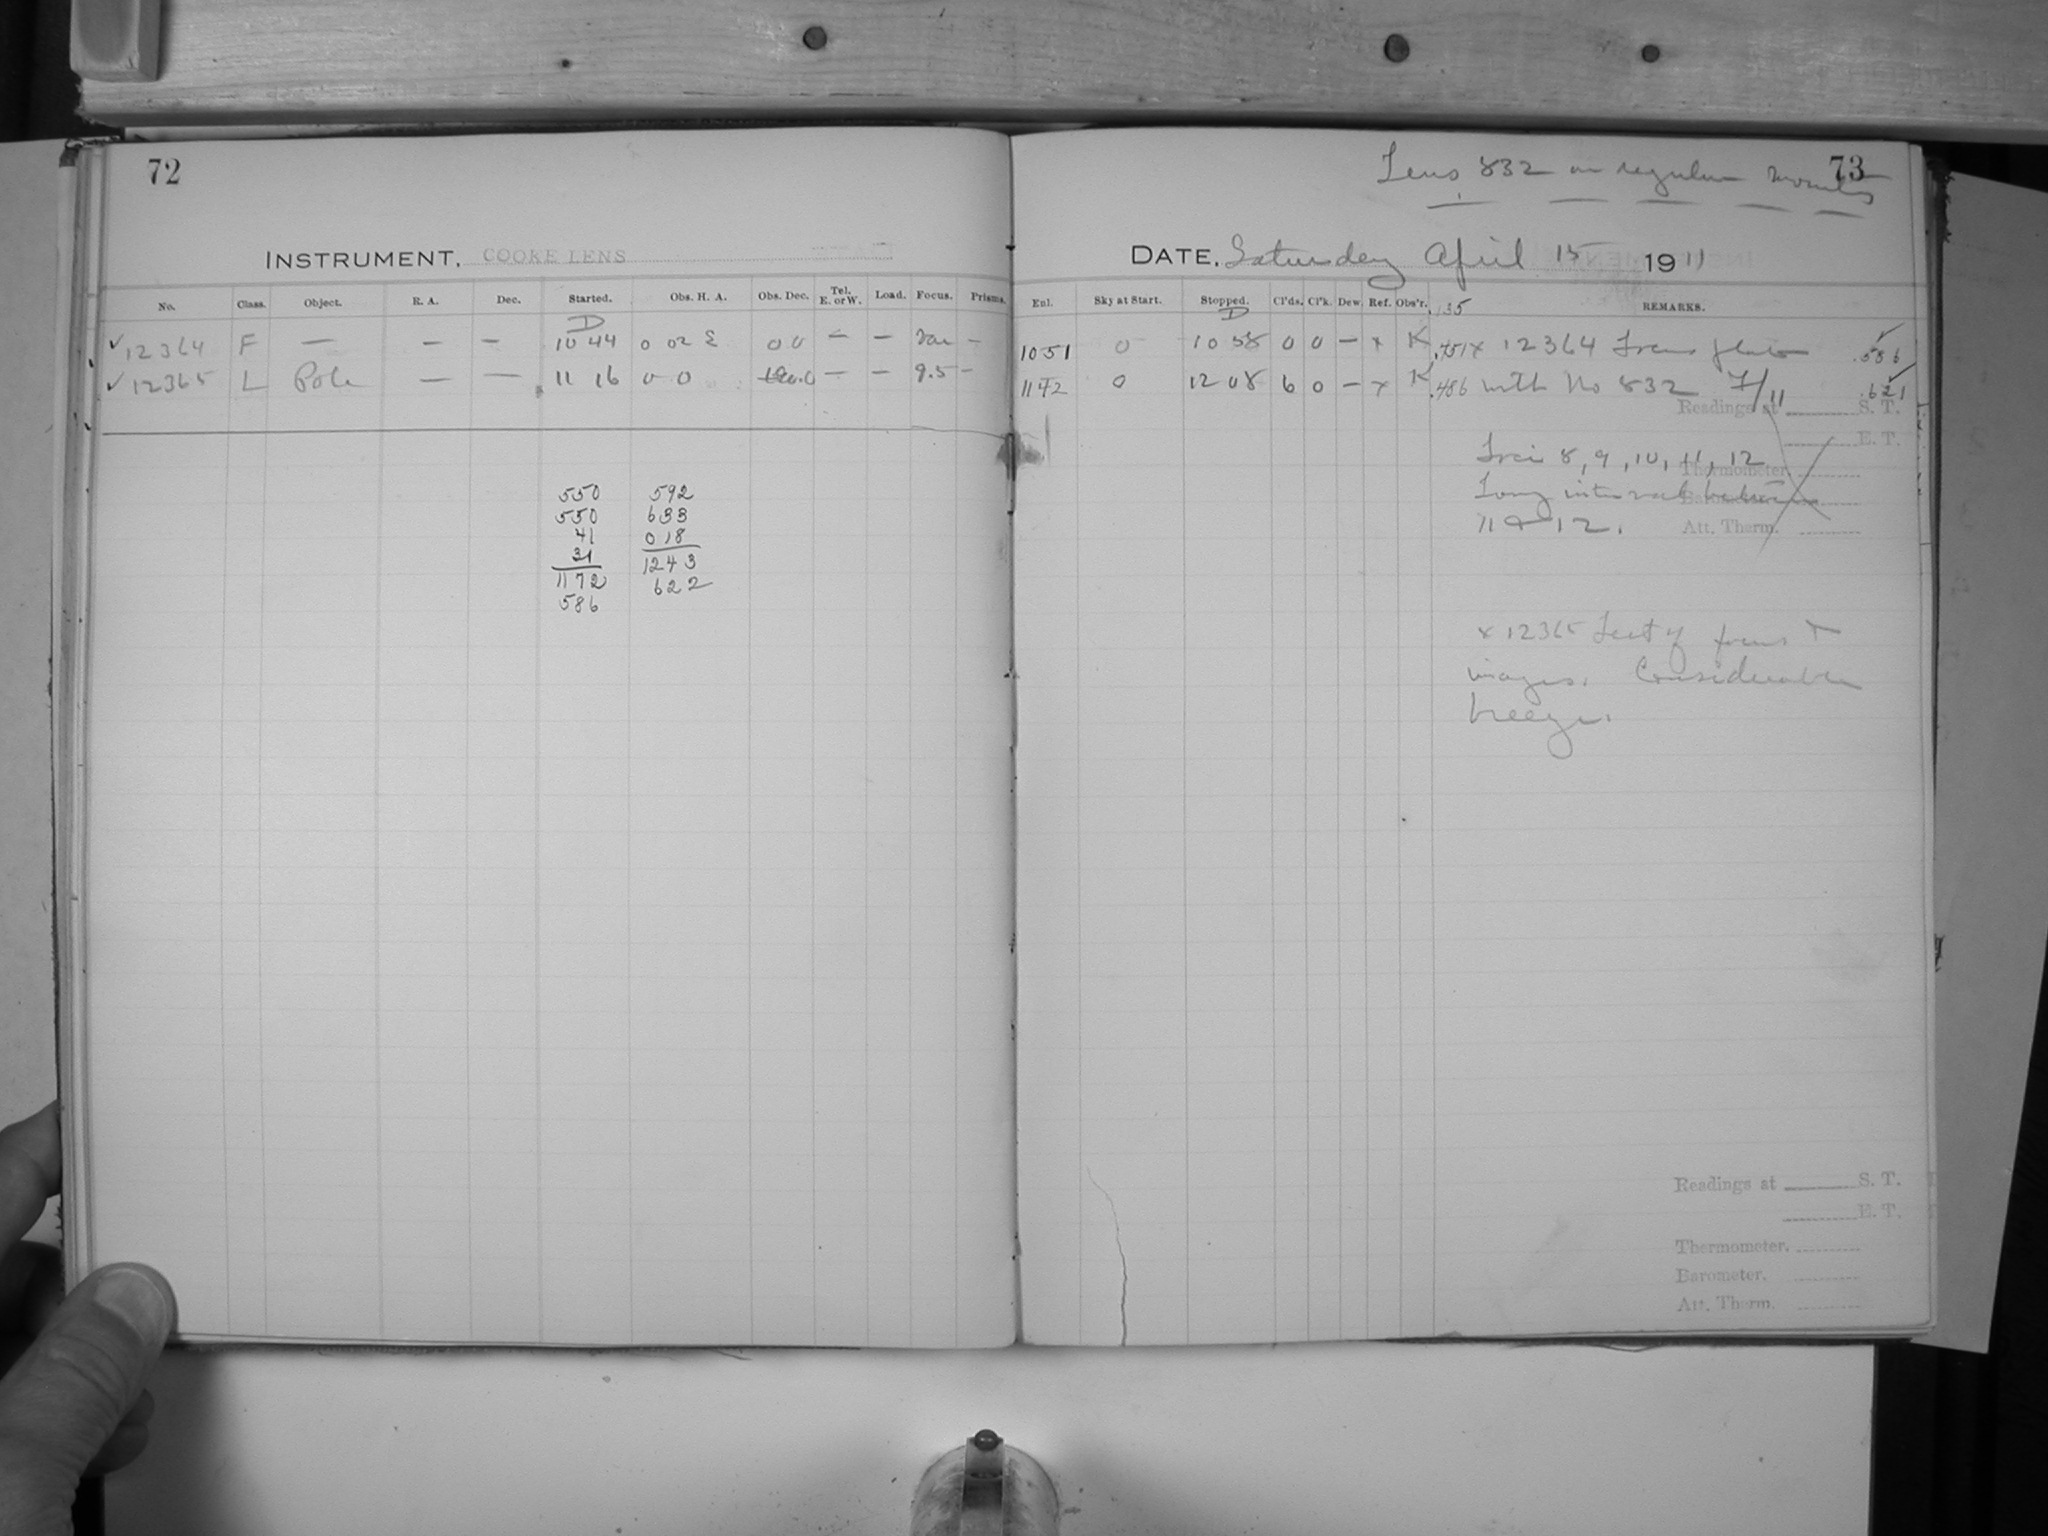 72
INSTRUMENT. COOKE LENS
No. Class. Object. R. A. Dec. Started. Obs. H. A. Obs. Dec. Tel. E. or W. Load. Focus. Prisms.
D
✓ 12364 F — — — 10 44 0 02 E 00 — — Var —
✓ 12365 L Pole — — 11 16 0 0 — — 9.5 —
550 592
550 633
41 018
31 1243
1172 622
586
73
Lens 832 on regular
DATE. Saturday April 15 1911
Enl. Sky at Start. Stopped. Cl'ds. Cl'k. Dew. Ref. Obs'r. .135 REMARKS.
D
1051 0 10 58 0 0 — x K .451 x 12364 Focus plate .586 ✓
1142 0 12 08 6 0 — x K .486 with No 832 7/11 .621 ✓
Readings at S. T.
E. T.
Foci 8, 9, 10, 11, 12
Thermometer.
Long interval between
11 & 12.
Att. Therm.
x 12365 Test of focus +
images. Considerable
breeze.
Readings at S. T.
E. T.
Thermometer.
Barometer.
Att. Therm.